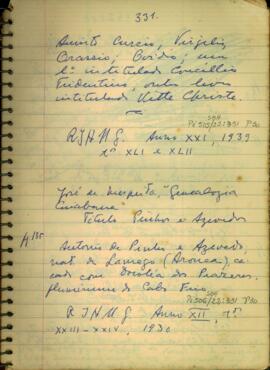 331.
Quinto Curcio, Virgilio,
Oracio; Ovidio; um
l.º intitulado Concilio
Tridentino, outro livro
intitulado Vitte Christo.
R I H M G. Anno XXI, 1939
nº XLI e XLII
José de Mesquita, "Genealogia
Cuiabana"
Titulo Pinho e Azevedo
Antonio de Pinho e Azevedo
nat. de Lamego (Arouca), ca
sado com Dorotéa dos Prazeres.
fluminense de Cabo Frio.
R I H M G Anno XII, nº
XXIII - XXIV, 1930